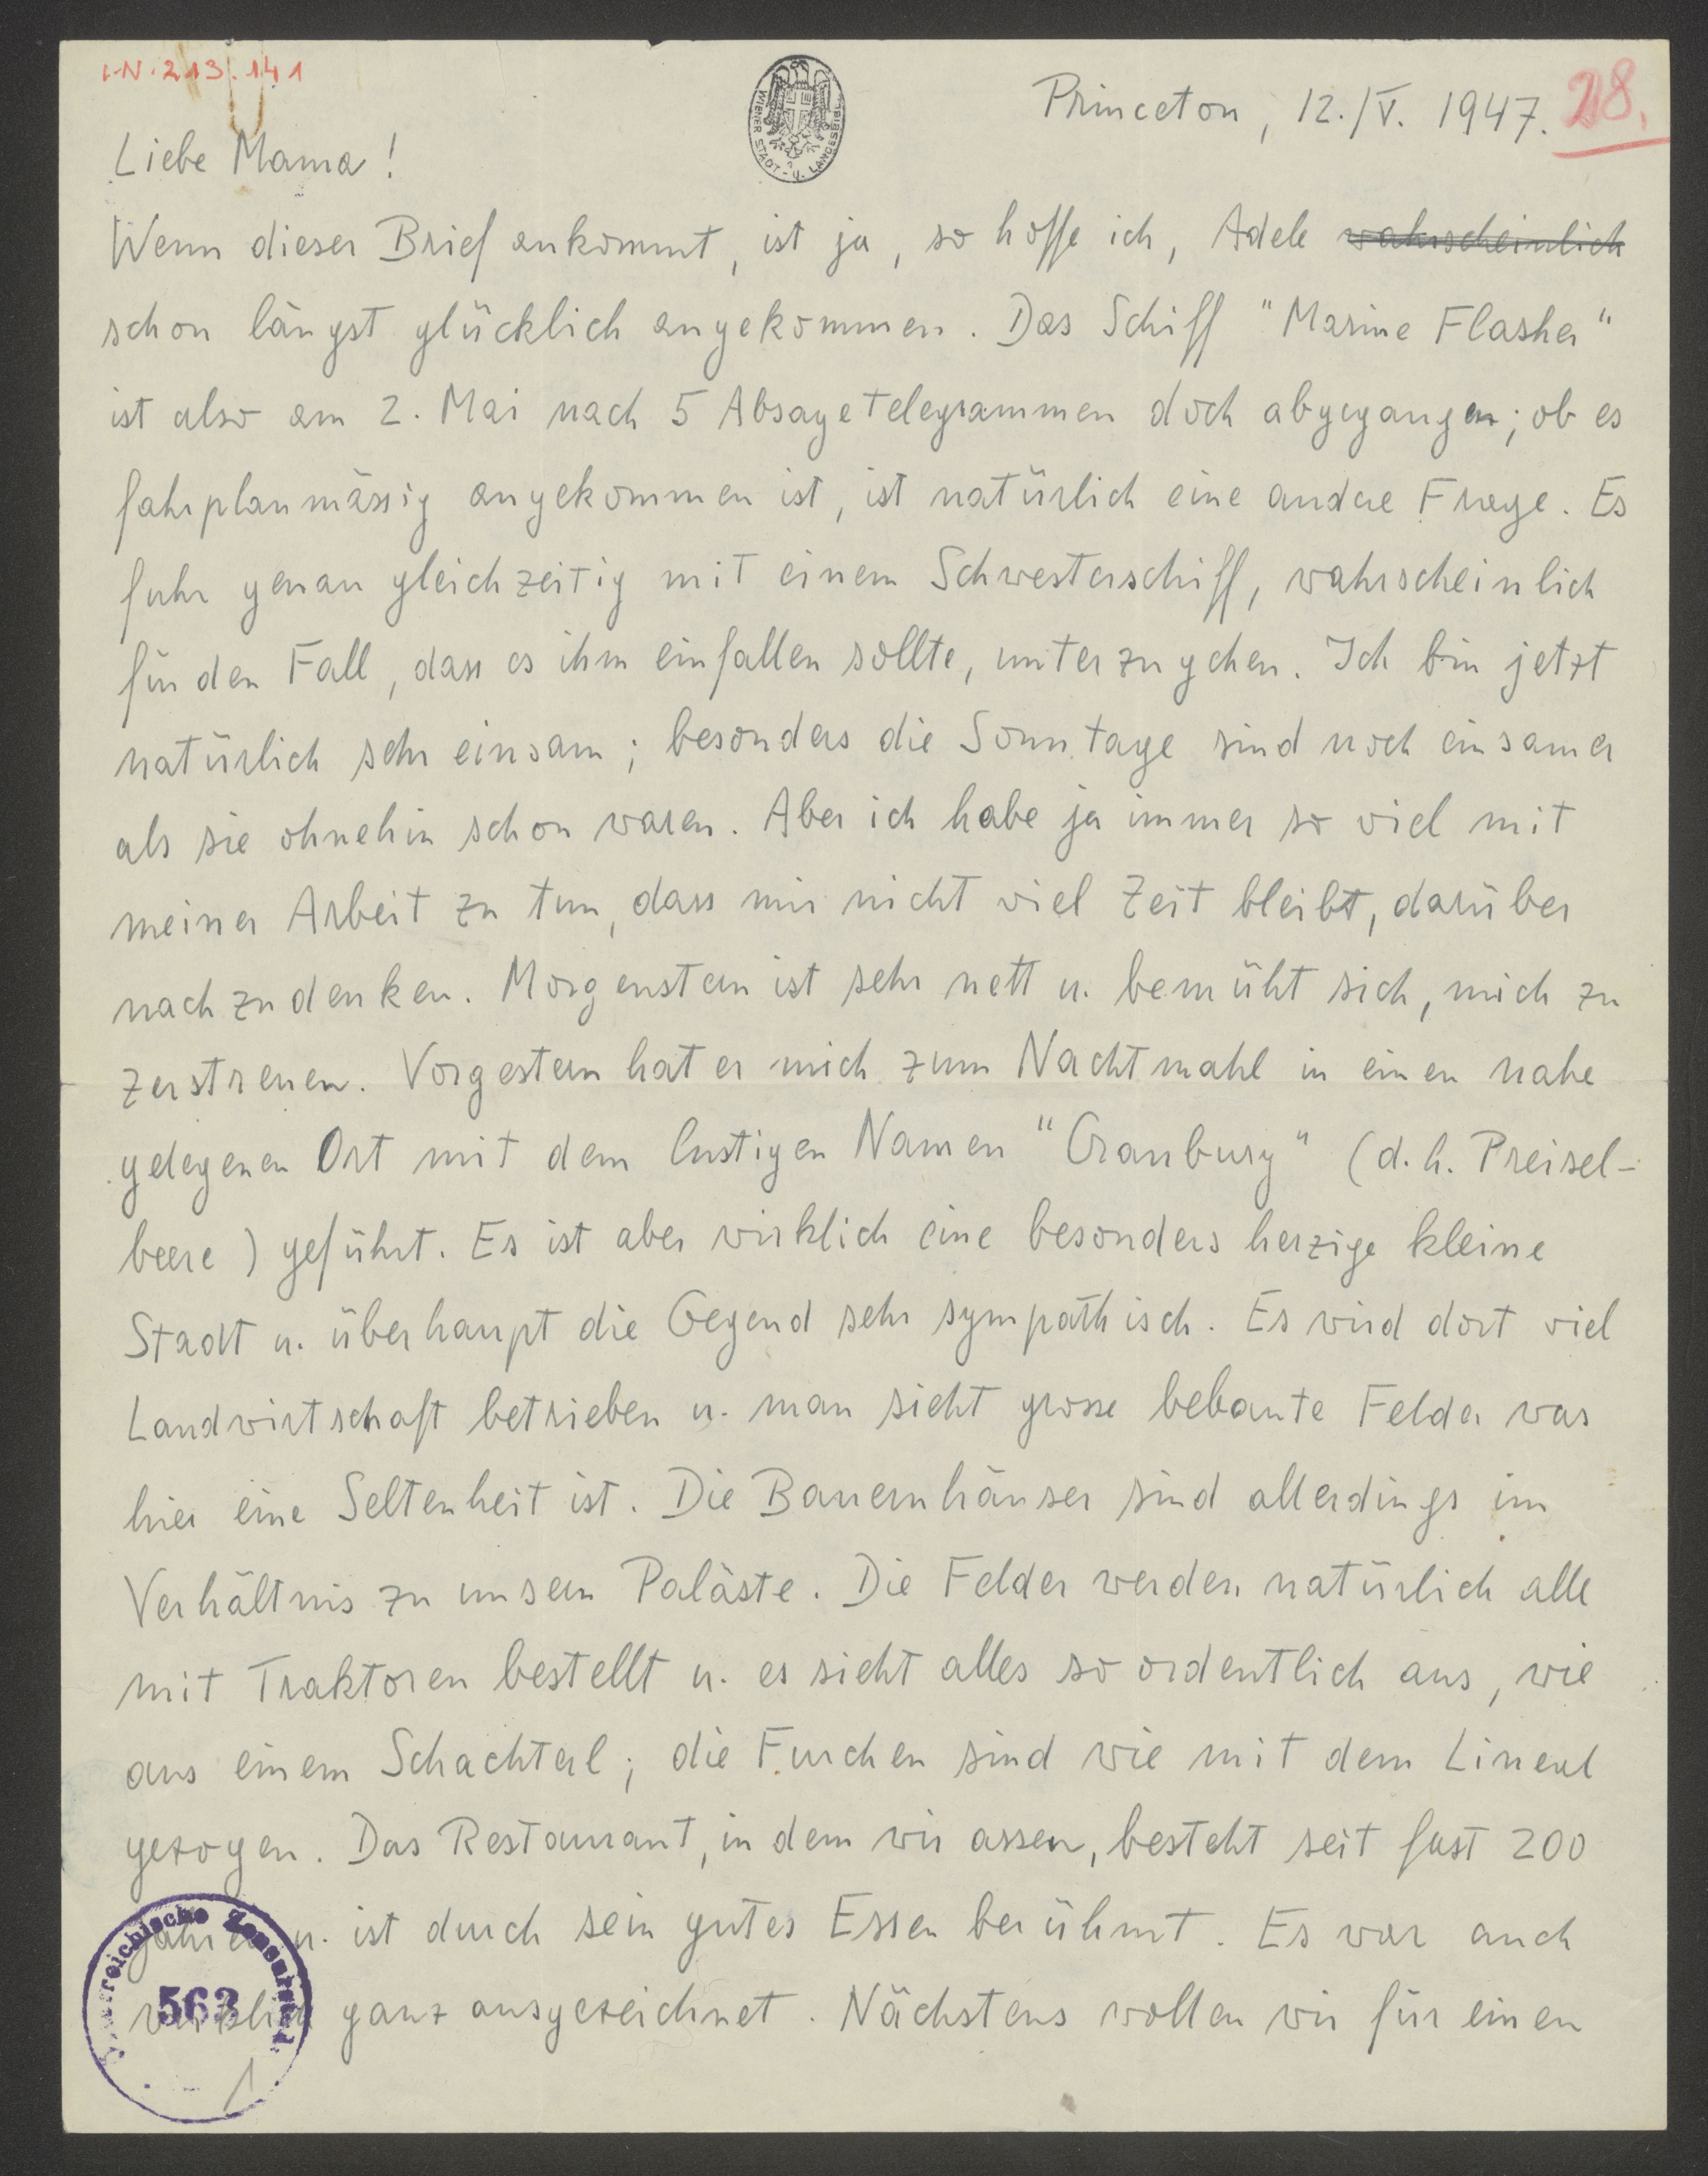 I.N. 213.141
WIENER STADT- U. LANDESBIBL.
Princeton, 12./V. 1947.
28.
Liebe Mama!
Wenn dieser Brief ankommt, ist ja, so hoffe ich, Adele wahrscheinlich
schon längst glücklich angekommen. Das Schiff "Marine Flasher"
ist also am 2. Mai nach 5 Absagetelegrammen doch abgegangen; ob es
fahrplanmässig angekommen ist, ist natürlich eine andere Frage. Es
fuhr genau gleichzeitig mit einem Schwesterschiff, wahrscheinlich
für den Fall, dass es ihm einfallen sollte, unterzugehen. Ich bin jetzt
natürlich sehr einsam; besonders die Sonntage sind noch einsamer
als sie ohnehin schon waren. Aber ich habe ja immer so viel mit
meiner Arbeit zu tun, dass mir nicht viel Zeit bleibt, darüber
nachzudenken. Morgenstern ist sehr nett u. bemüht sich, mich zu
zerstreuen. Vorgestern hat er mich zum Nachtmahl in einen nahe
gelegenen Ort mit dem lustigen Namen "Cranbury" (d.h. Preisel-
beere) geführt. Es ist aber wirklich eine besonders herzige kleine
Stadt u. überhaupt die Gegend sehr sympathisch. Es wird dort viel
Landwirtschaft betrieben u. man sieht grosse bebaute Felder was
hier eine Seltenheit ist. Die Bauernhäuser sind allerdings im
Verhältnis zu unsern Paläste. Die Felder werden natürlich alle
mit Traktoren bestellt u. es sieht alles so ordentlich aus, wie
aus einem Schachterl; die Furchen sind wie mit dem Lineal
gezogen. Das Restaurant, in dem wir assen, besteht seit fast 200
Jahren u. ist durch sein gutes Essen berühmt. Es war auch
wirklich ganz ausgezeichnet. Nächstens wollen wir für einen
Österreichische Zensurstelle
563
1